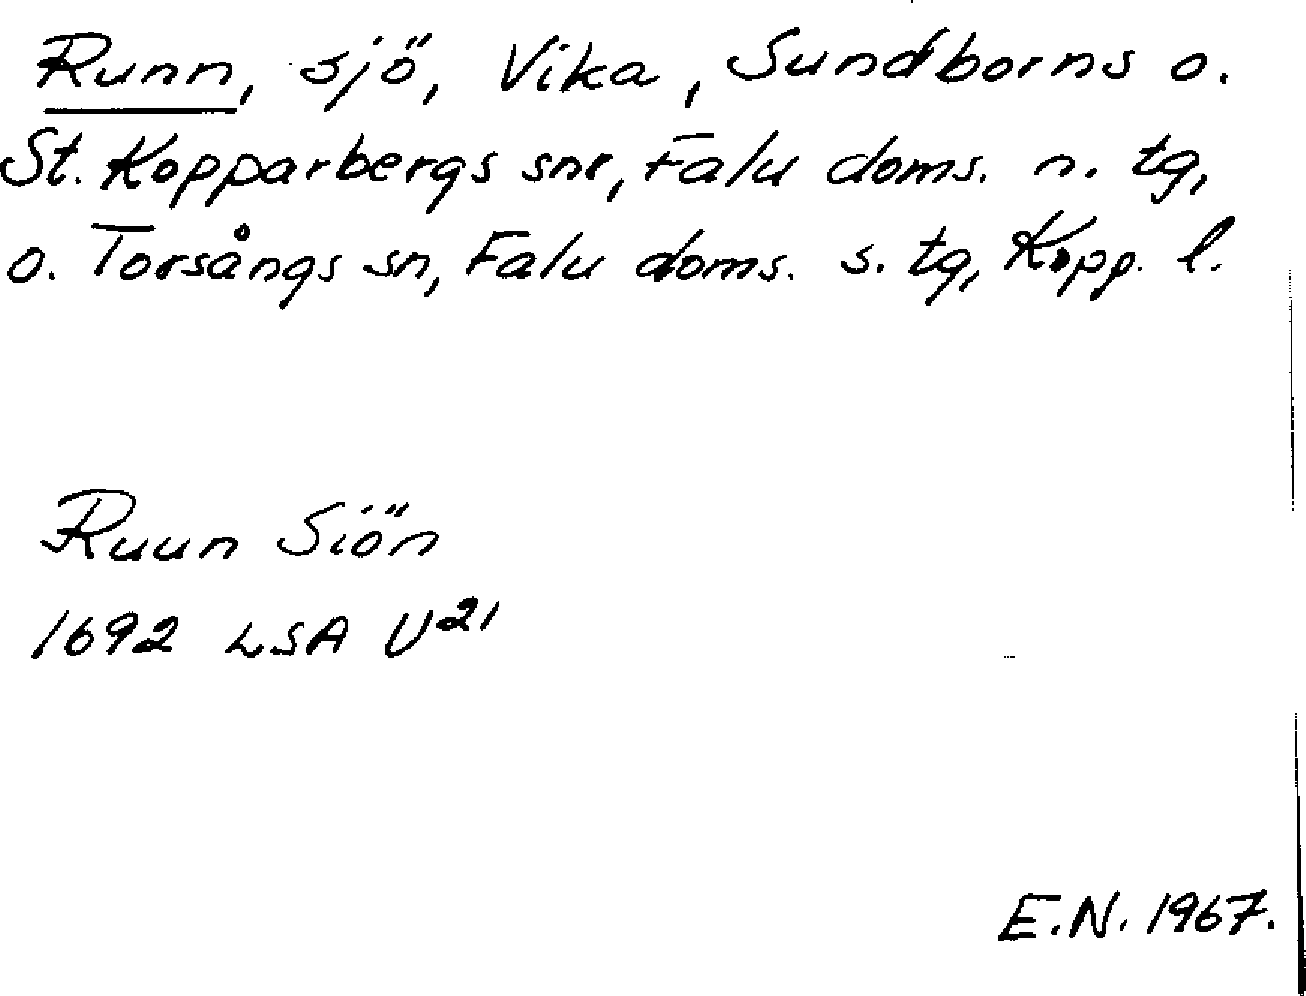 Runn, sjö, Vika, Sundborns o.
St. Kopparbergs snr, Falu doms. n. tg,
o. Torsångs sn, Falu doms. s. tg, Kopp. l.
Ruun Siön
1692 LSA U21
E.N. 1967.